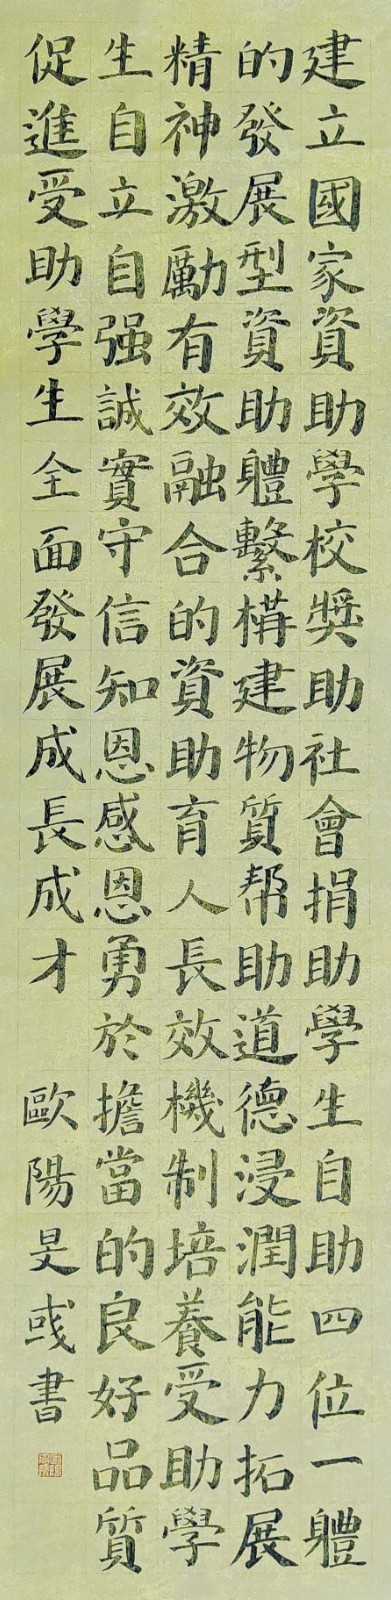 建立國家資助學校獎助社會捐助學生自助四位一體
的發展型資助體繫構建物質帮助道德浸潤能力拓展
精神激勵有效融合的資助育人長效機制培養受助學
生自立自强誠實守信知恩感恩勇於擔當的良好品質
促進受助學生全面發展成長成才 歐陽旻彧書